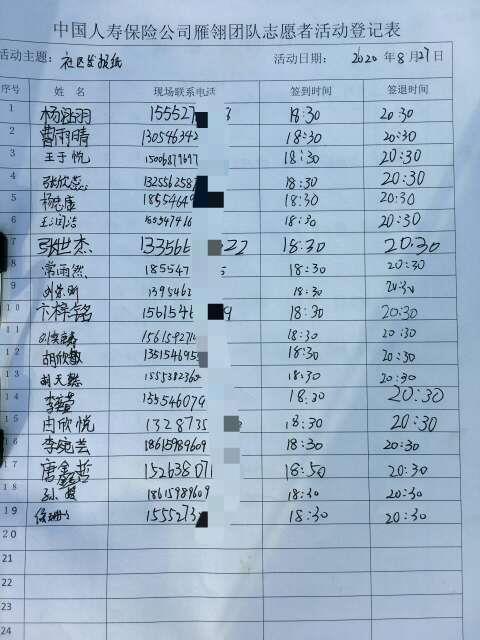 中国人寿保险公司雁翎团队志愿者活动登记表
活动主题： 社区发报纸 活动日期： 2020年8月27日
序号 姓 名 现场联系电话 签到时间 签退时间
1 15552 18:30 20:30
2 曹雨晴 130546342 18:30 20:30
3 王于悦 15006879697 18:30 20:30
4 张欣蕊 132556258 18:30 20:30
5 杨忠唐 18554649 18:30 20:30
6 18:30 20:30
7 张世杰 133566 22 18:30 20:30
8 常雨然 185547 18:30 20:30
9 1395462 18:30 20:30
10 卞梓铭 1561546 9 18:30 20:30
11 156159271 18:30 20:30
12 胡欣敏 1351546955 18:30 20:30
13 1555382360 18:30 20:30
14 155546079 18:30 20:30
15 冉欣悦 1328735 18:30 20:30
16 李宛芸 18615989609 18:30 20:30
17 152638071 18:50 20:30
18 18615989609 18:30 20:30
19 1555273 18:30 20:30
20
21
22
23
24